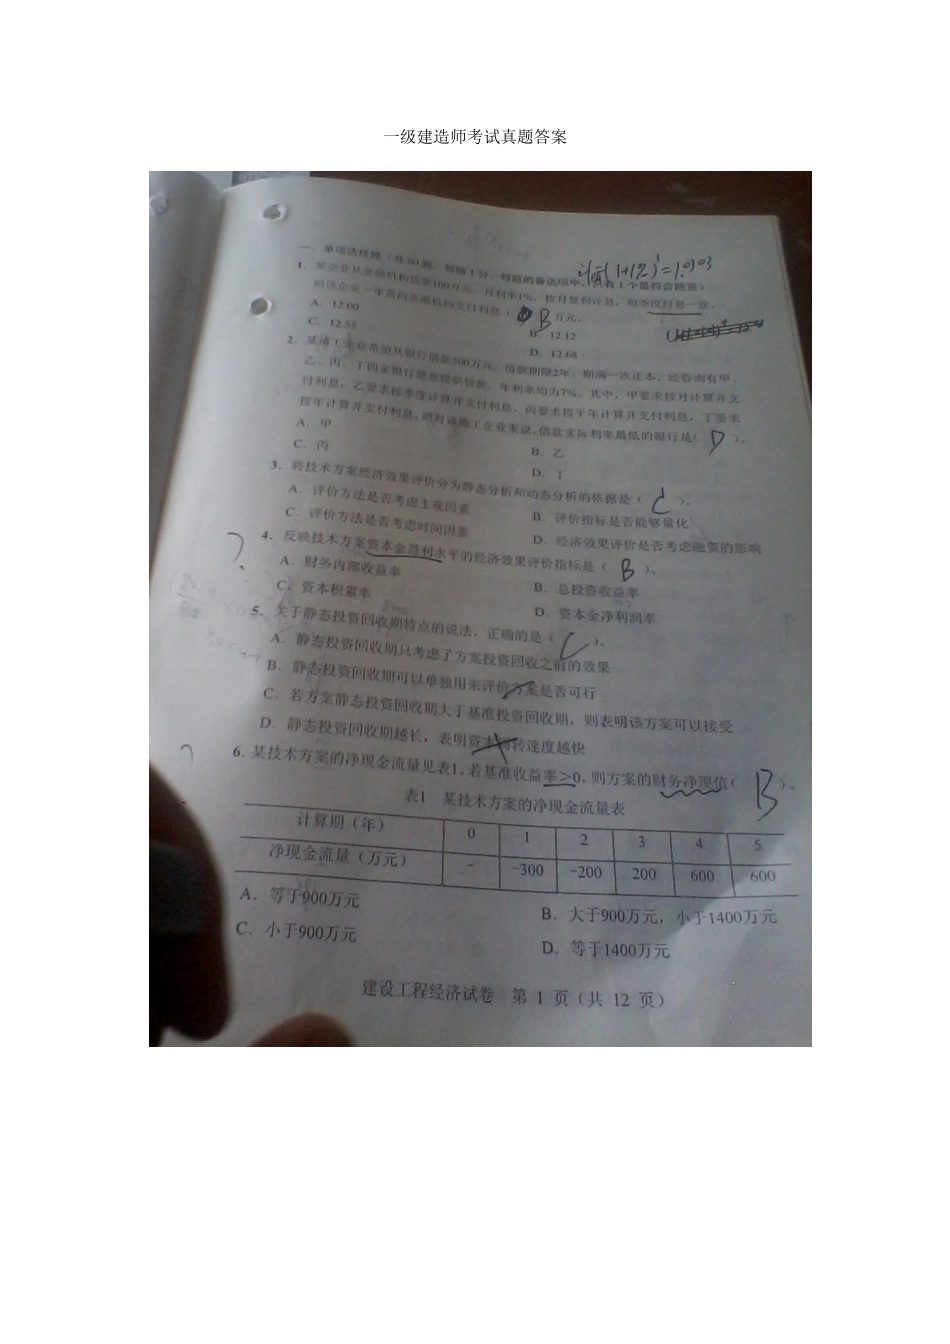 一级建造师考试真题答案
一、单项选择题（共60题，每题1分，每题的备选项中，只有1个最符合题意）
(1+1%)³=1.0303
1．某企业从金融机构借款100万元，月利率1%，按月复利计息，每季度付息一次，
则该企业一年需向金融机构支付利息（ B 万元。
A．12.00
B．12.12
C．12.55
D．12.68
2．某施工企业希望从银行借款500万元，借款期限2年，期满一次还本，经咨询有甲、
乙、丙、丁四家银行愿意提供贷款，年利率均为7%，其中，甲要求按月计算并支
付利息，乙要求按季度计算并支付利息，丙要求按半年计算并支付利息，丁要求
按年计算并支付利息。则对该施工企业来说，借款实际利率最低的银行是（ D ）。
A．甲
B．乙
C．丙
D．丁
3．将技术方案经济效果评价分为静态分析和动态分析的依据是（ C ）。
A．评价方法是否考虑主观因素
B．评价指标是否能够量化
C．评价方法是否考虑时间因素
D．经济效果评价是否考虑融资的影响
? 4．反映技术方案资本金盈利水平的经济效果评价指标是（ B ）。
A．财务内部收益率
B．总投资收益率
C．资本积累率
D．资本金净利润率
5．关于静态投资回收期特点的说法，正确的是（ C ）。
A．静态投资回收期只考虑了方案投资回收之前的效果
B．静态投资回收期可以单独用来评价方案是否可行
C．若方案静态投资回收期大于基准投资回收期，则表明该方案可以接受
D．静态投资回收期越长，表明资本周转速度越快
? 6．某技术方案的净现金流量见表1。若基准收益率≥0，则方案的财务净现值（ B ）。
表1 某技术方案的净现金流量表
计算期（年） 0 1 2 3 4 5
净现金流量（万元） - -300 -200 200 600 600
A．等于900万元
B．大于900万元，小于1400万元
C．小于900万元
D．等于1400万元
建设工程经济试卷 第 1 页（共 12 页）